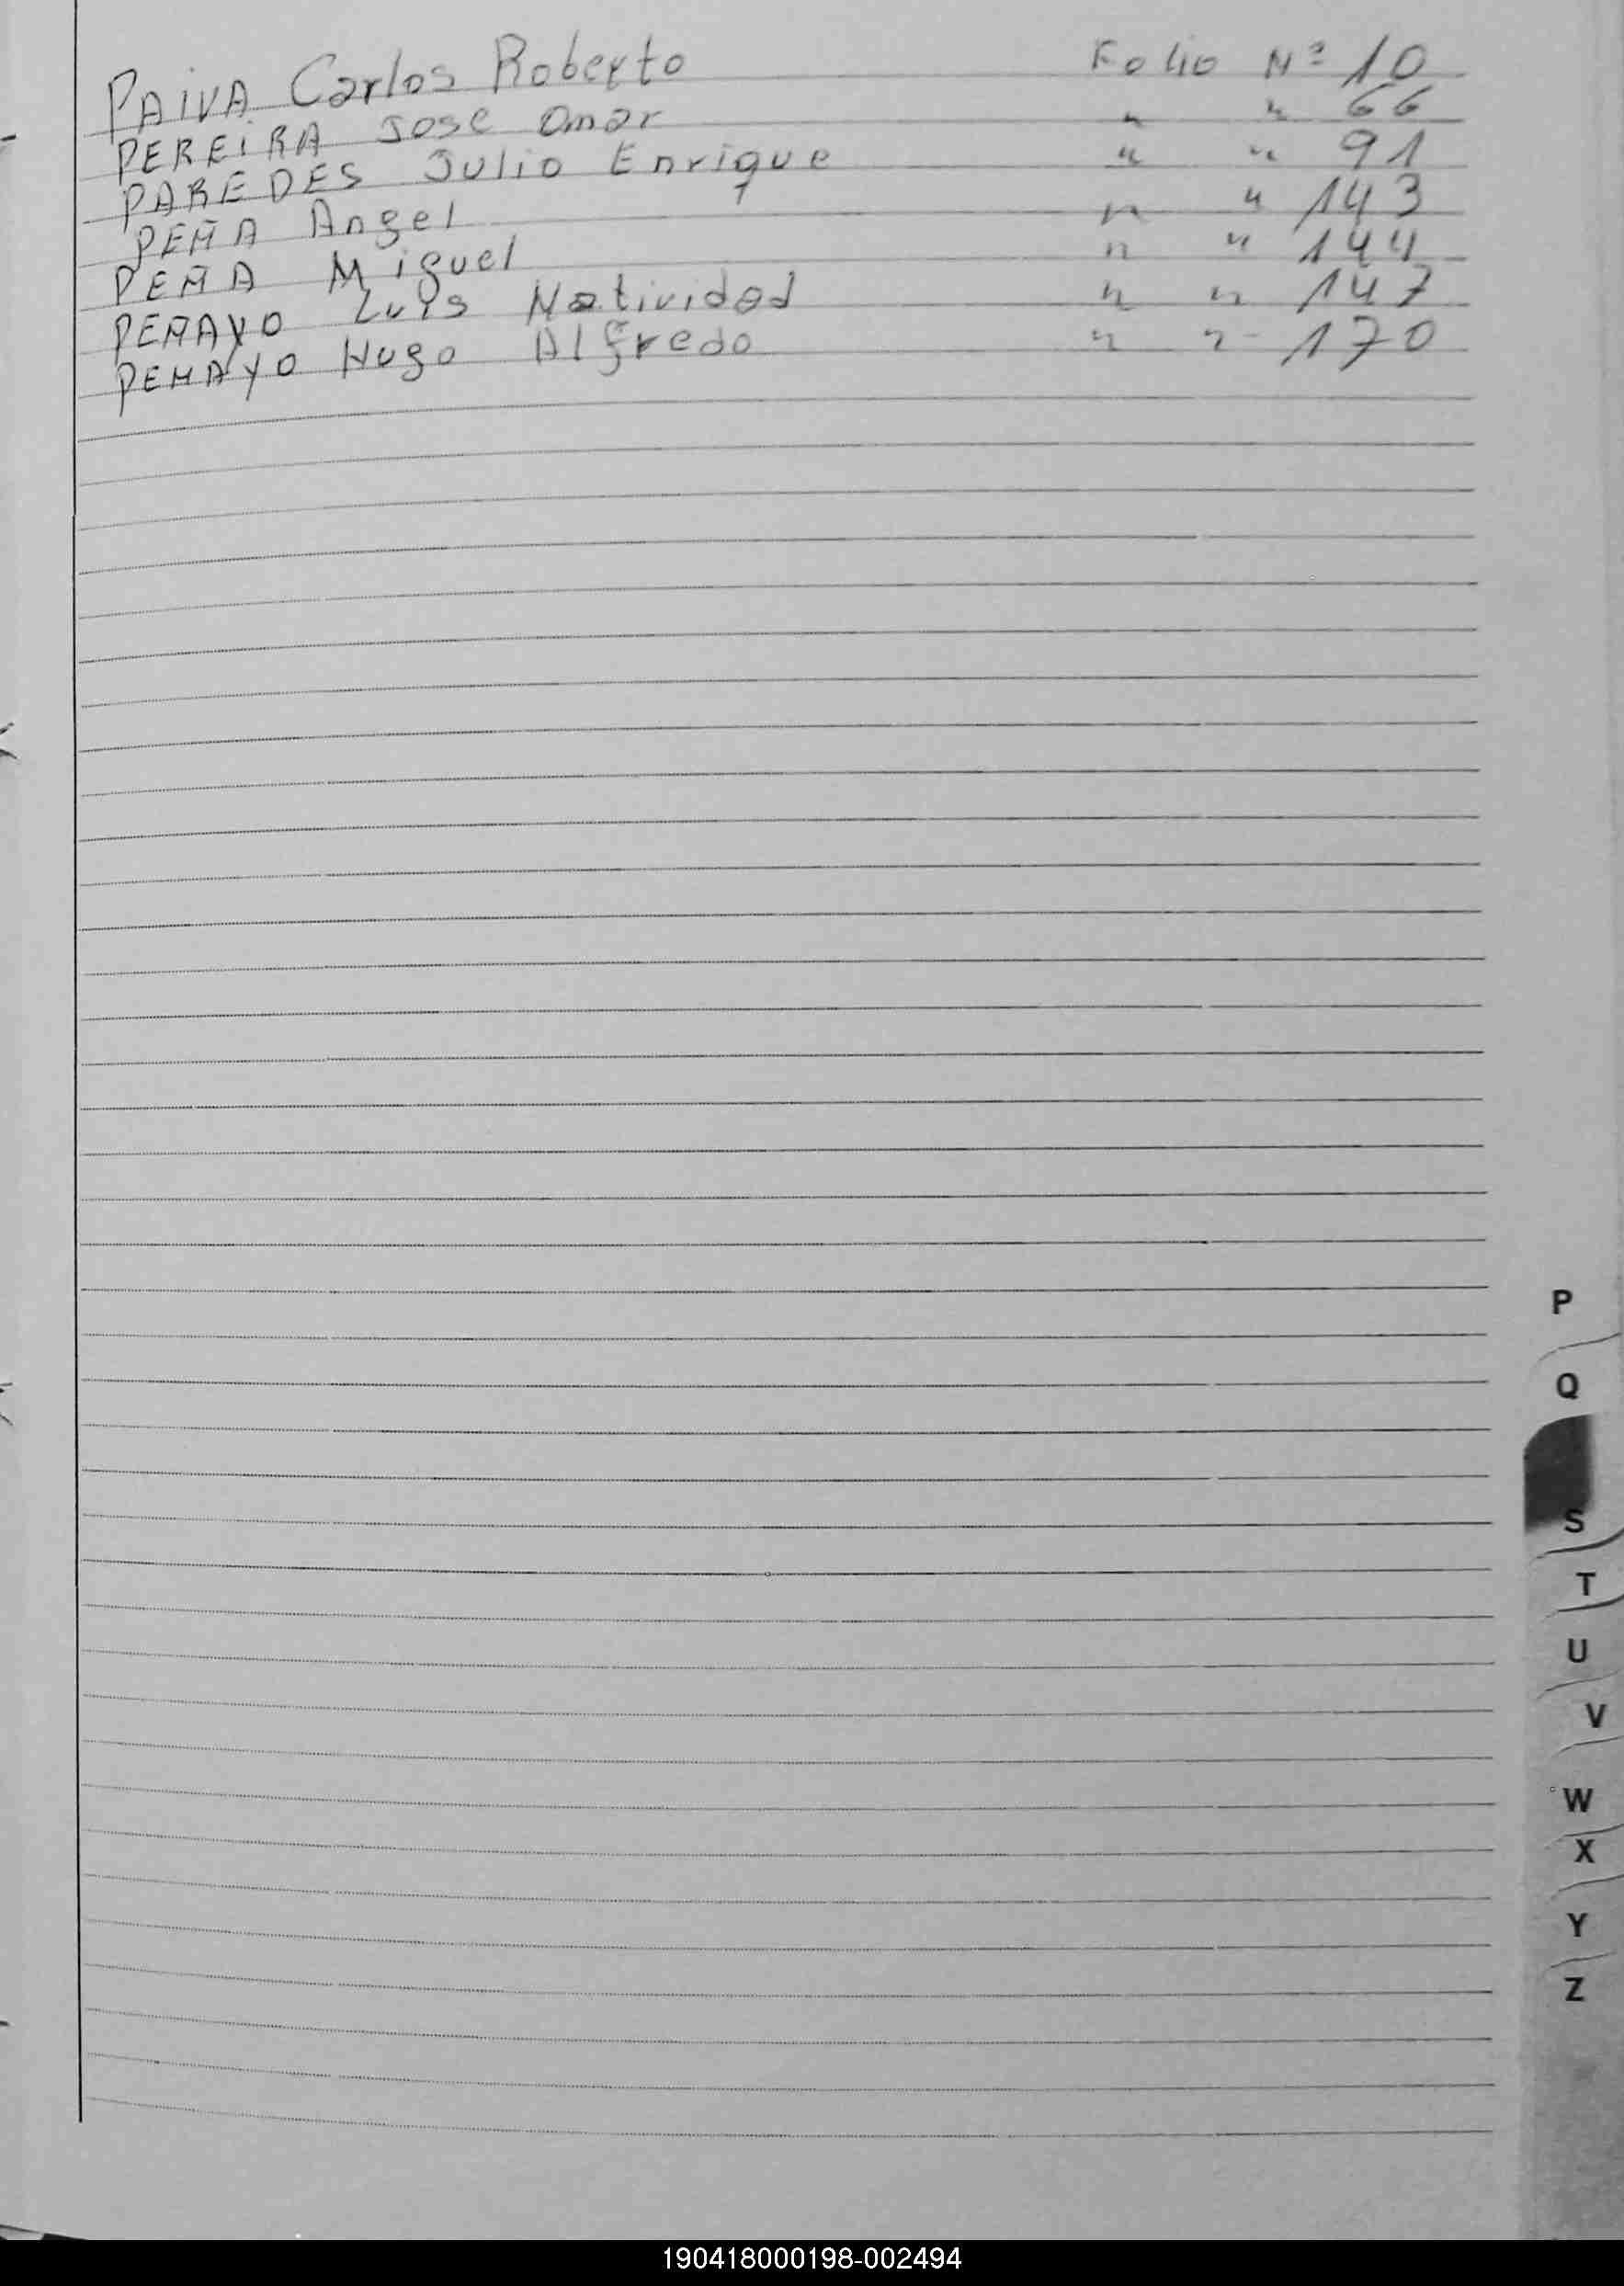 PAIVA Carlos Roberto Folio Nº 10
PEREIRA Jose Omar " " 66
PAREDES Julio Enrique " " 91
PEÑA Angel " " 143
PEÑA Miguel " " 144
PEÑAYO Luis Natividad " " 147
PEÑAYO Hugo Alfredo " " 170
P
Q
S
T
U
V
W
X
Y
Z
190418000198-002494